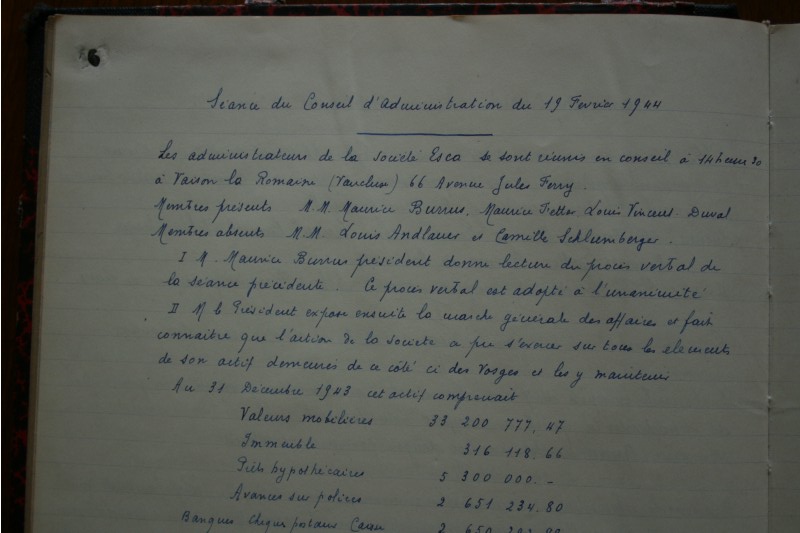 6
Séance du Conseil d'Administration du 19 Février 1944
Les administrateurs de la société Esca se sont réunis en conseil à 14 heures 30
à Vaison la Romaine (Vaucluse) 66 Avenue Jules Ferry.
Membres présents M.M. Maurice Burrus, Maurice Louis Vincent. Duval
Membres absents M.M. Louis Andlauer et Camille Schlumberger.
I M. Maurice Burrus président donne lecture du procès verbal de
la séance précédente. Ce procès verbal est adopté à l'unanimité
II M le Président expose ensuite la marche générale des affaires et fait
connaitre que l'action de la société a pu s'exercer sur tous les éléments
de son actif demeurés de ce côté ci des Vosges et les y maintenir
Au 31 Décembre 1943 cet actif comprenait
Valeurs mobilières 33 200 777.47
Immeuble 316 118.66
Prêts hypothécaires 5 300 000.-
Avances sur polices 2 651 234.80
Banques Chèques postaux Caisse 2 650